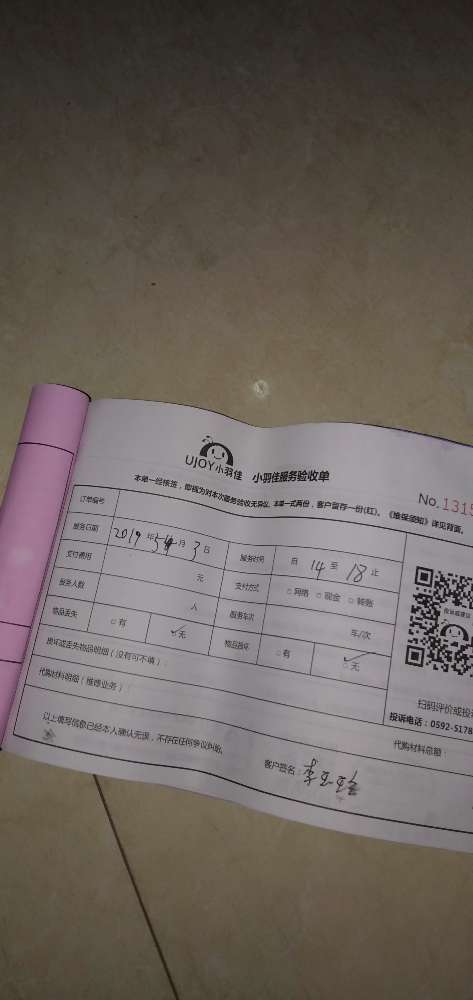 UJOY小羽佳 小羽佳服务验收单
本单一经核签，即视为对本次服务验收无异议。本单一式两份，客户留存一份(红)。《维保须知》详见背面。
No.1315
订单编号
服务日期 2019年 月3日 服务时间 自14至18止
支付费用 元 支付方式 □网络 □现金 □转账
服务人数 人 服务车次 车/次
物品丢失 □有 ✓无 物品损坏 □有 ✓无
损坏或丢失物品明细（没有可不填）：
代购材料明细（维修业务）：
代购材料总额：
以上填写信息已经本人确认无误，不存在任何争议纠纷。
客户签名：
扫码评价或投
投诉电话：0592-5178